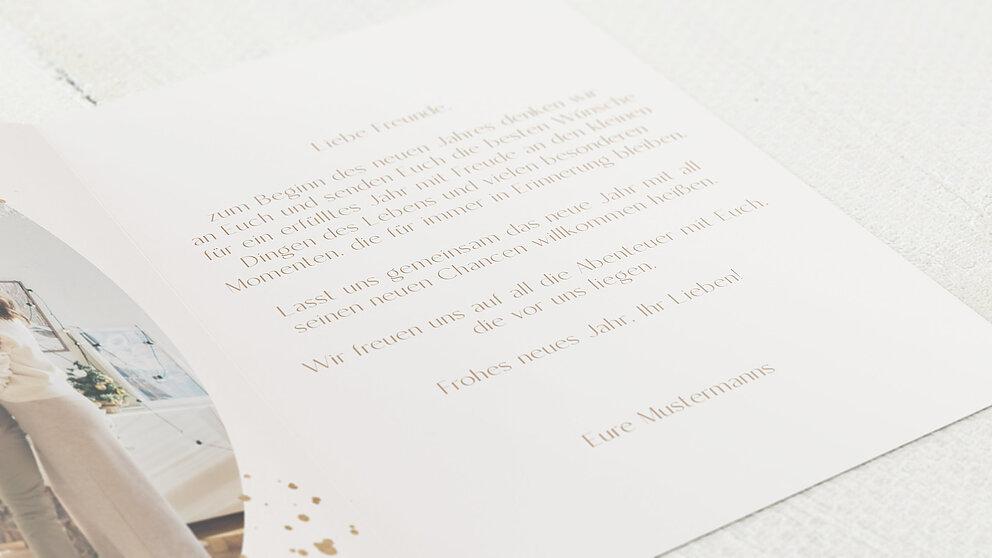 Liebe Freunde,
zum Beginn des neuen Jahres denken wir
an Euch und senden Euch die besten Wünsche
für ein erfülltes Jahr mit Freude an den kleinen
Dingen des Lebens und vielen besonderen
Momenten, die für immer in Erinnerung bleiben.
Lasst uns gemeinsam das neue Jahr mit all
seinen neuen Chancen willkommen heißen.
Wir freuen uns auf all die Abenteuer mit Euch,
die vor uns liegen.
Frohes neues Jahr, Ihr Lieben!
Eure Mustermanns